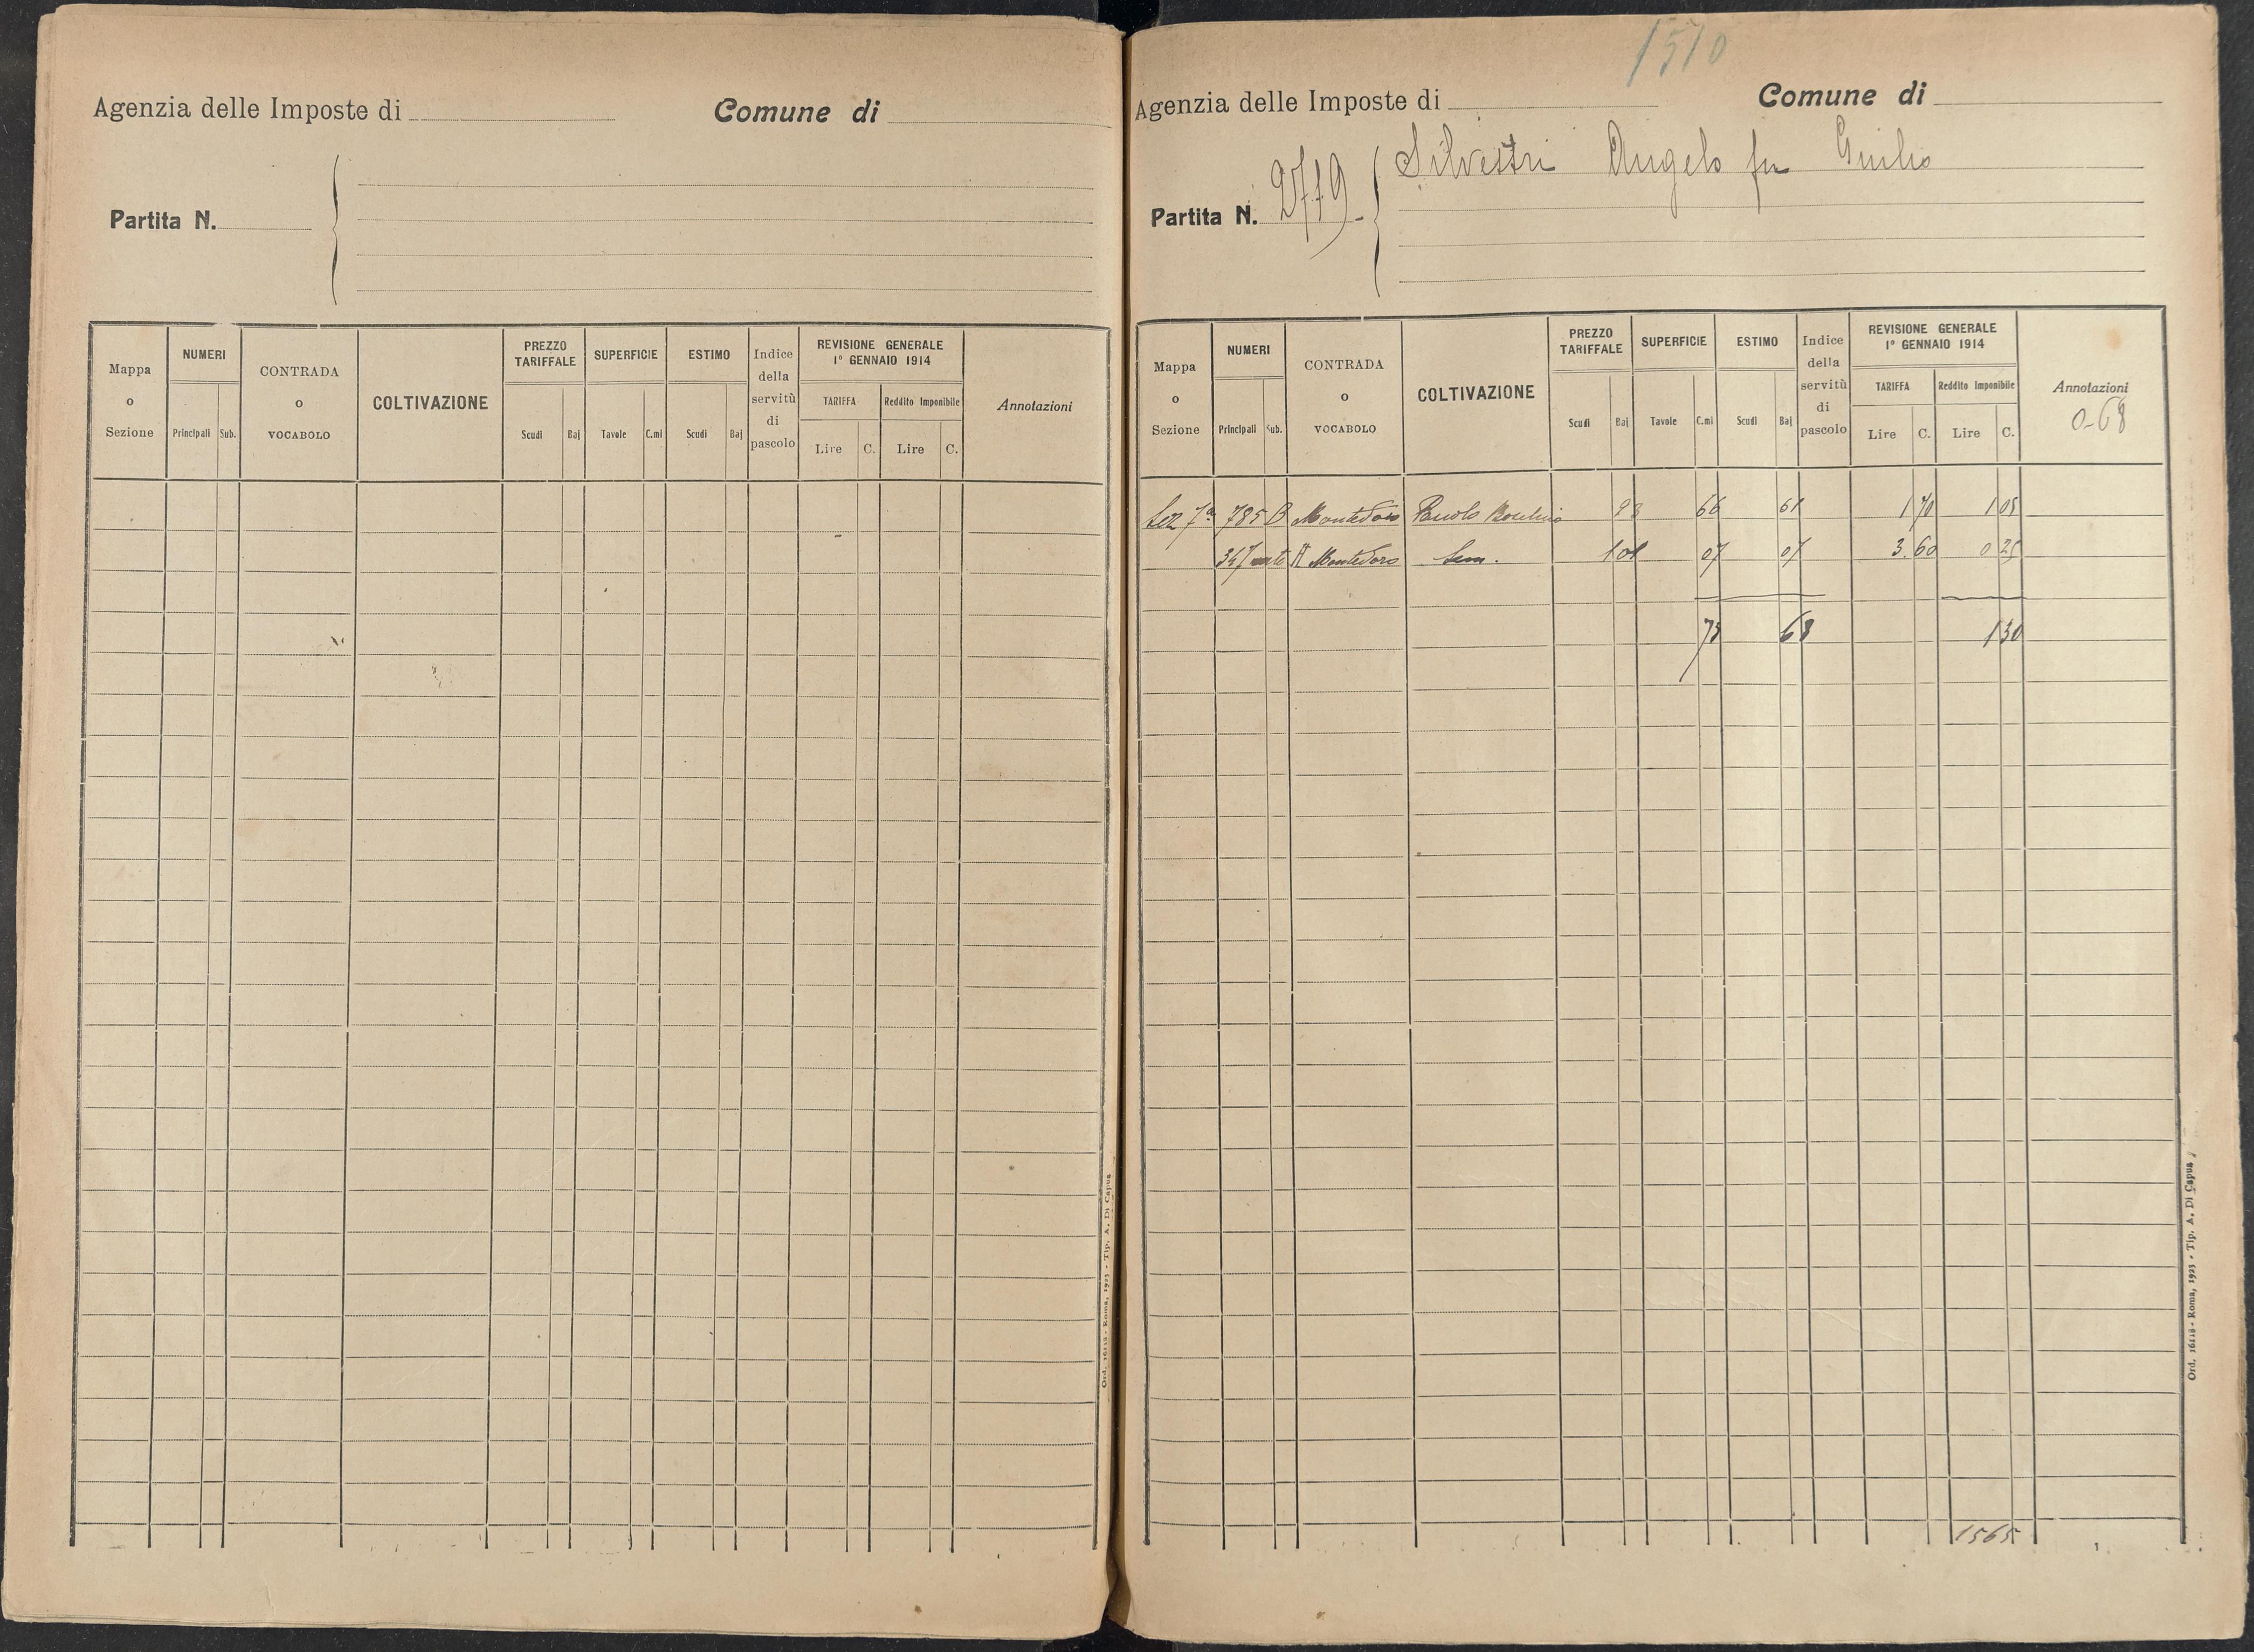 Agenzia delle Imposte di
Comune di
Partita N.
Mappa o Sezione
NUMERI
Principali
Sub.
CONTRADA o VOCABOLO
COLTIVAZIONE
PREZZO TARIFFALE
Scudi
Baj
SUPERFICIE
Tavole
C.mi
ESTIMO
Scudi
Baj
Indice della servitù di pascolo
REVISIONE GENERALE
1° GENNAIO 1914
TARIFFA
Lire
C.
Reddito Imponibile
Lire
C.
Annotazioni
Ord. 16118 - Roma, 1923 - Tip. A. Di Capua
1510
Agenzia delle Imposte di
Comune di
Partita N. 2719
Silvestri Angelo fu Giulio
Mappa o Sezione
NUMERI
Principali
Sub.
CONTRADA o VOCABOLO
COLTIVAZIONE
PREZZO TARIFFALE
Scudi
Baj
SUPERFICIE
Tavole
C.mi
ESTIMO
Scudi
Baj
Indice della servitù di pascolo
REVISIONE GENERALE
1° GENNAIO 1914
TARIFFA
Lire
C.
Reddito Imponibile
Lire
C.
Annotazioni
0-68
Sez 7a 785 B Montedoro 93 66 61 1 70 1 05
347 Montedoro Sem. 1 01 07 07 3.60 0 25
73 68 1 30
1565
Ord. 16118 - Roma, 1923 - Tip. A. Di Capua